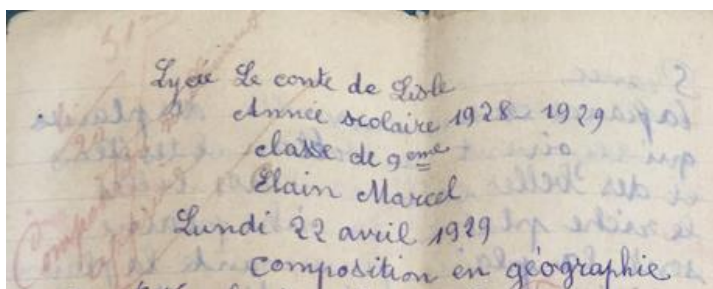 Lycée Le conte de Lisle
Année scolaire 1928 1929
classe de 9eme
Elain Marcel
Lundi 22 avril 1929
composition en géographie